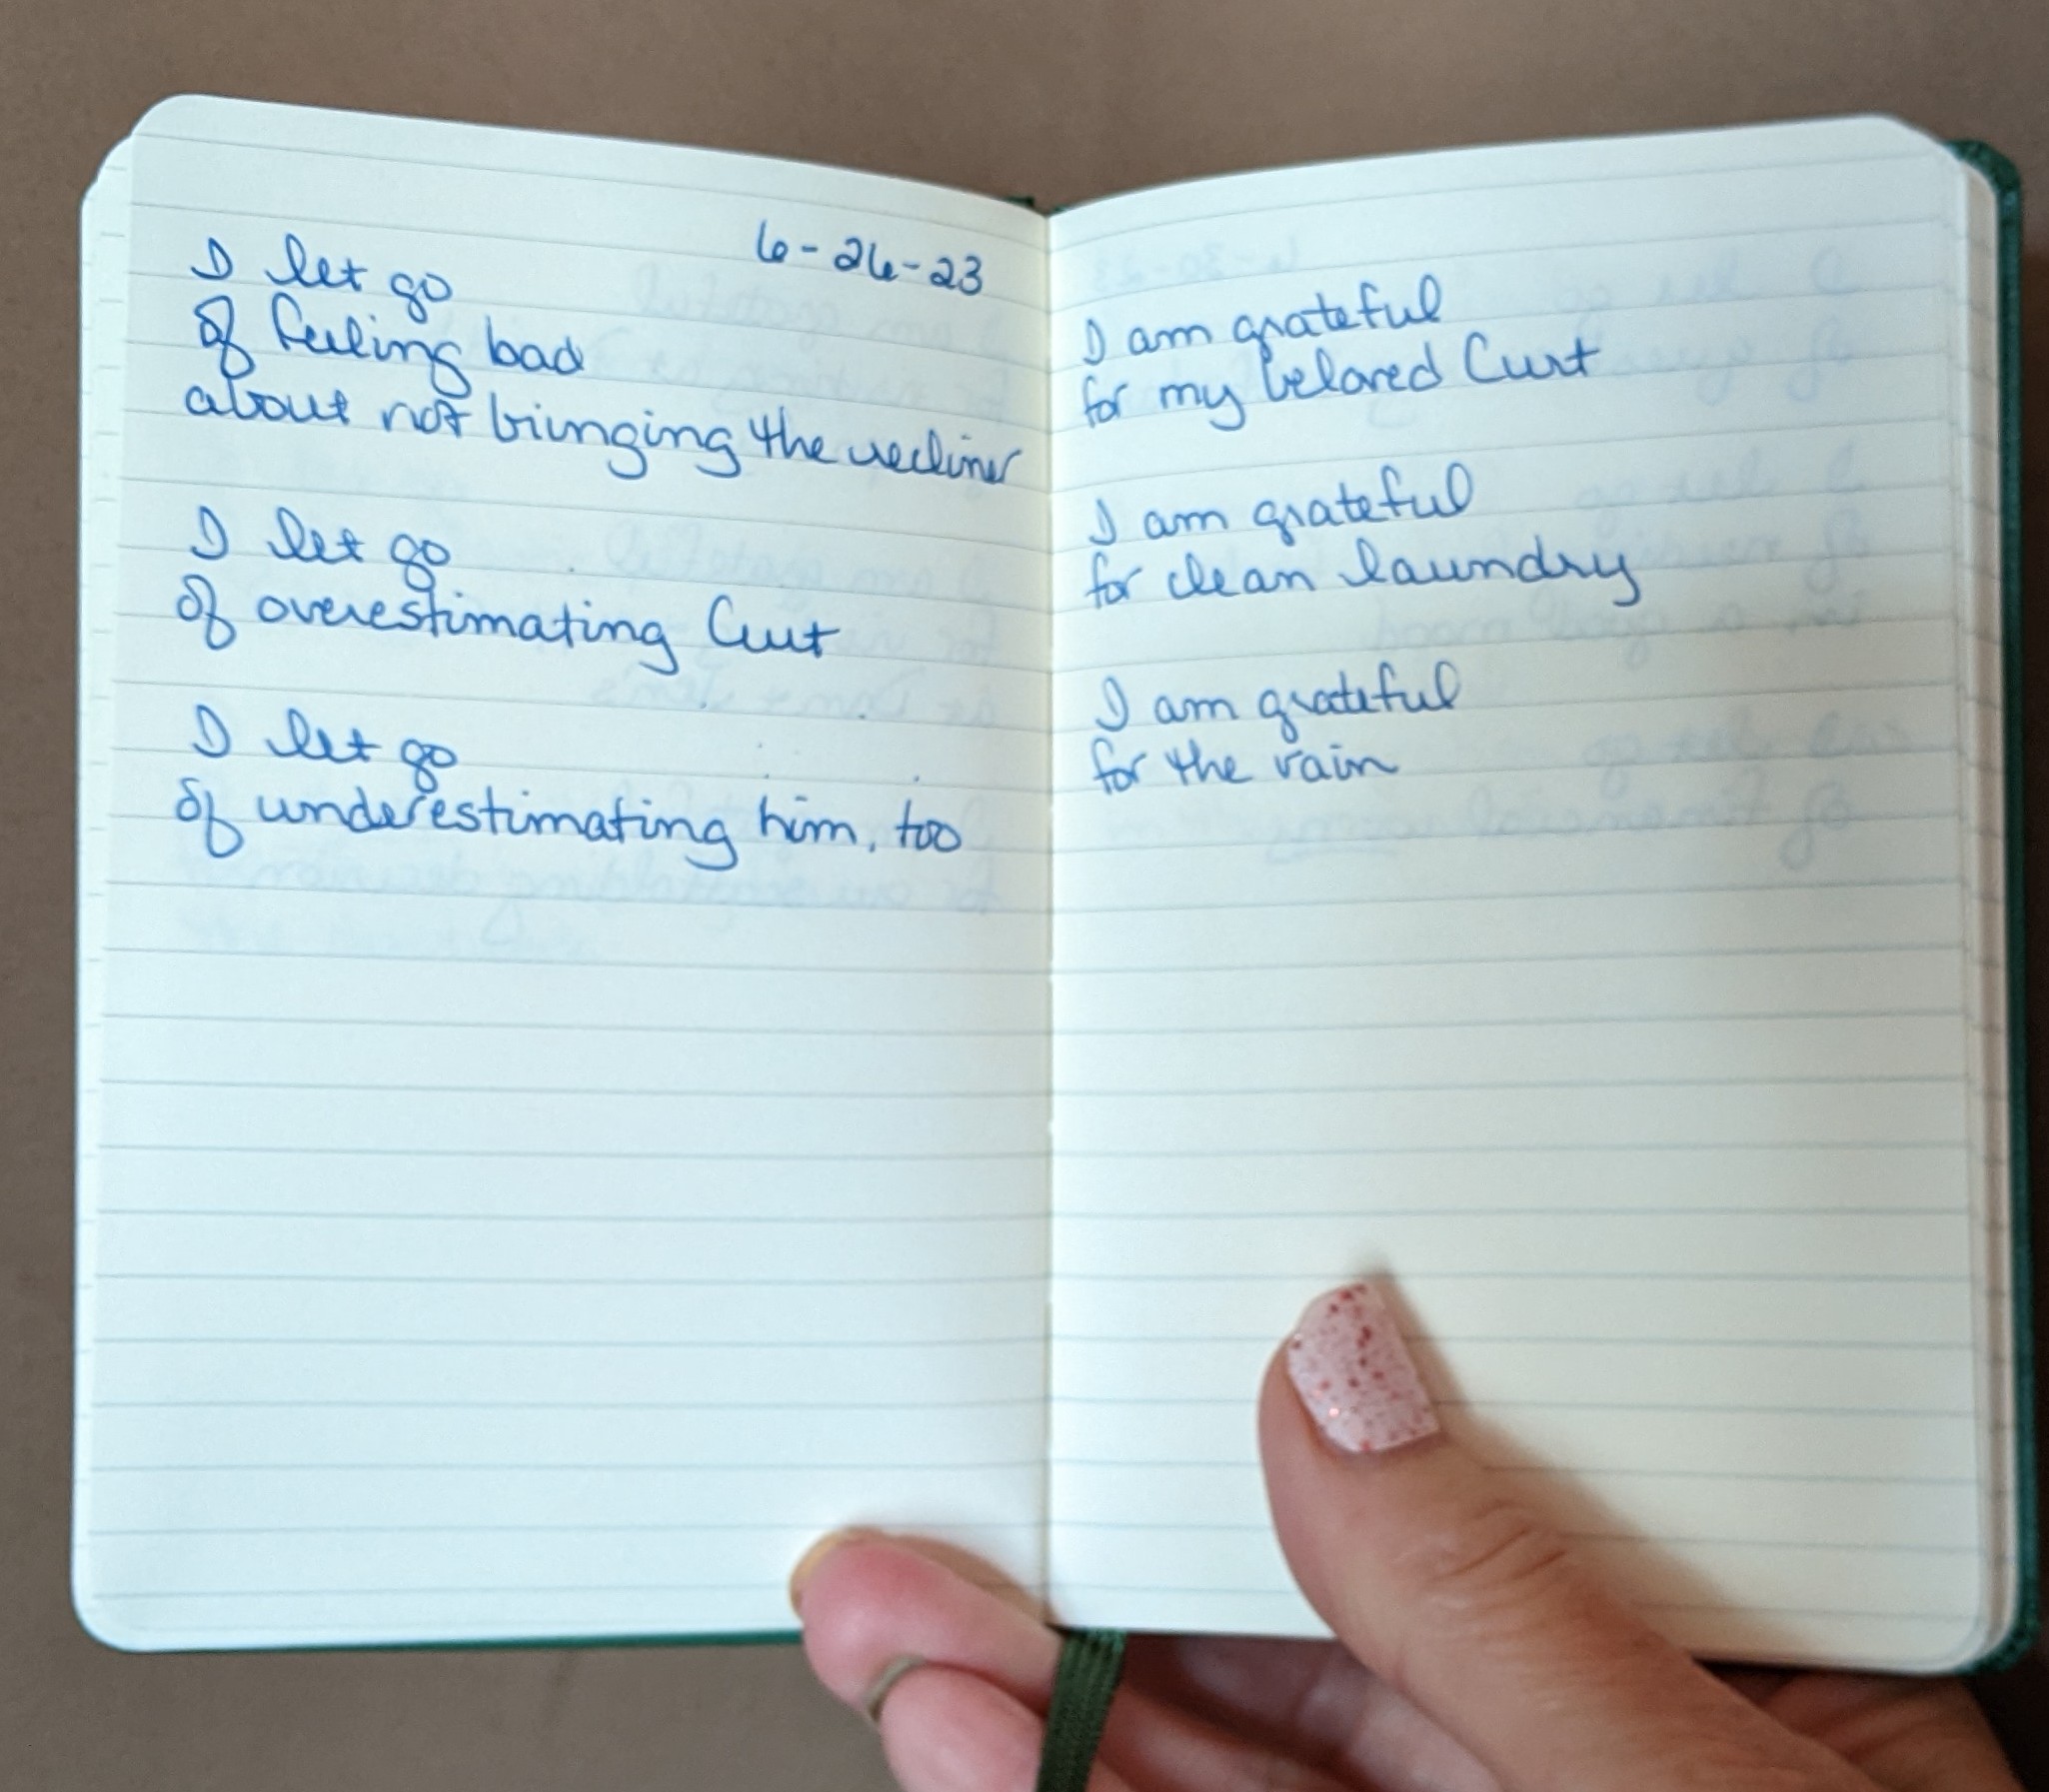 6-26-23
I let go
of feeling bad
about not bringing the recliner
I let go
of overestimating Curt
I let go
of underestimating him, too
I am grateful
for my beloved Curt
I am grateful
for clean laundry
I am grateful
for the rain